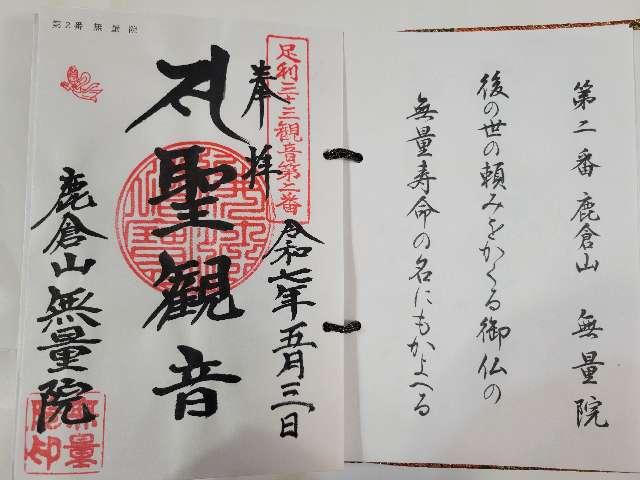 第二番 鹿倉山 無量院
後の世の頼みをかくる御仏の
無量寿命の名にもかよへる
足利三十三観音第二番
奉拝
令和七年五月三日
聖観音
鹿倉山無量院
無量
第2番 無量院